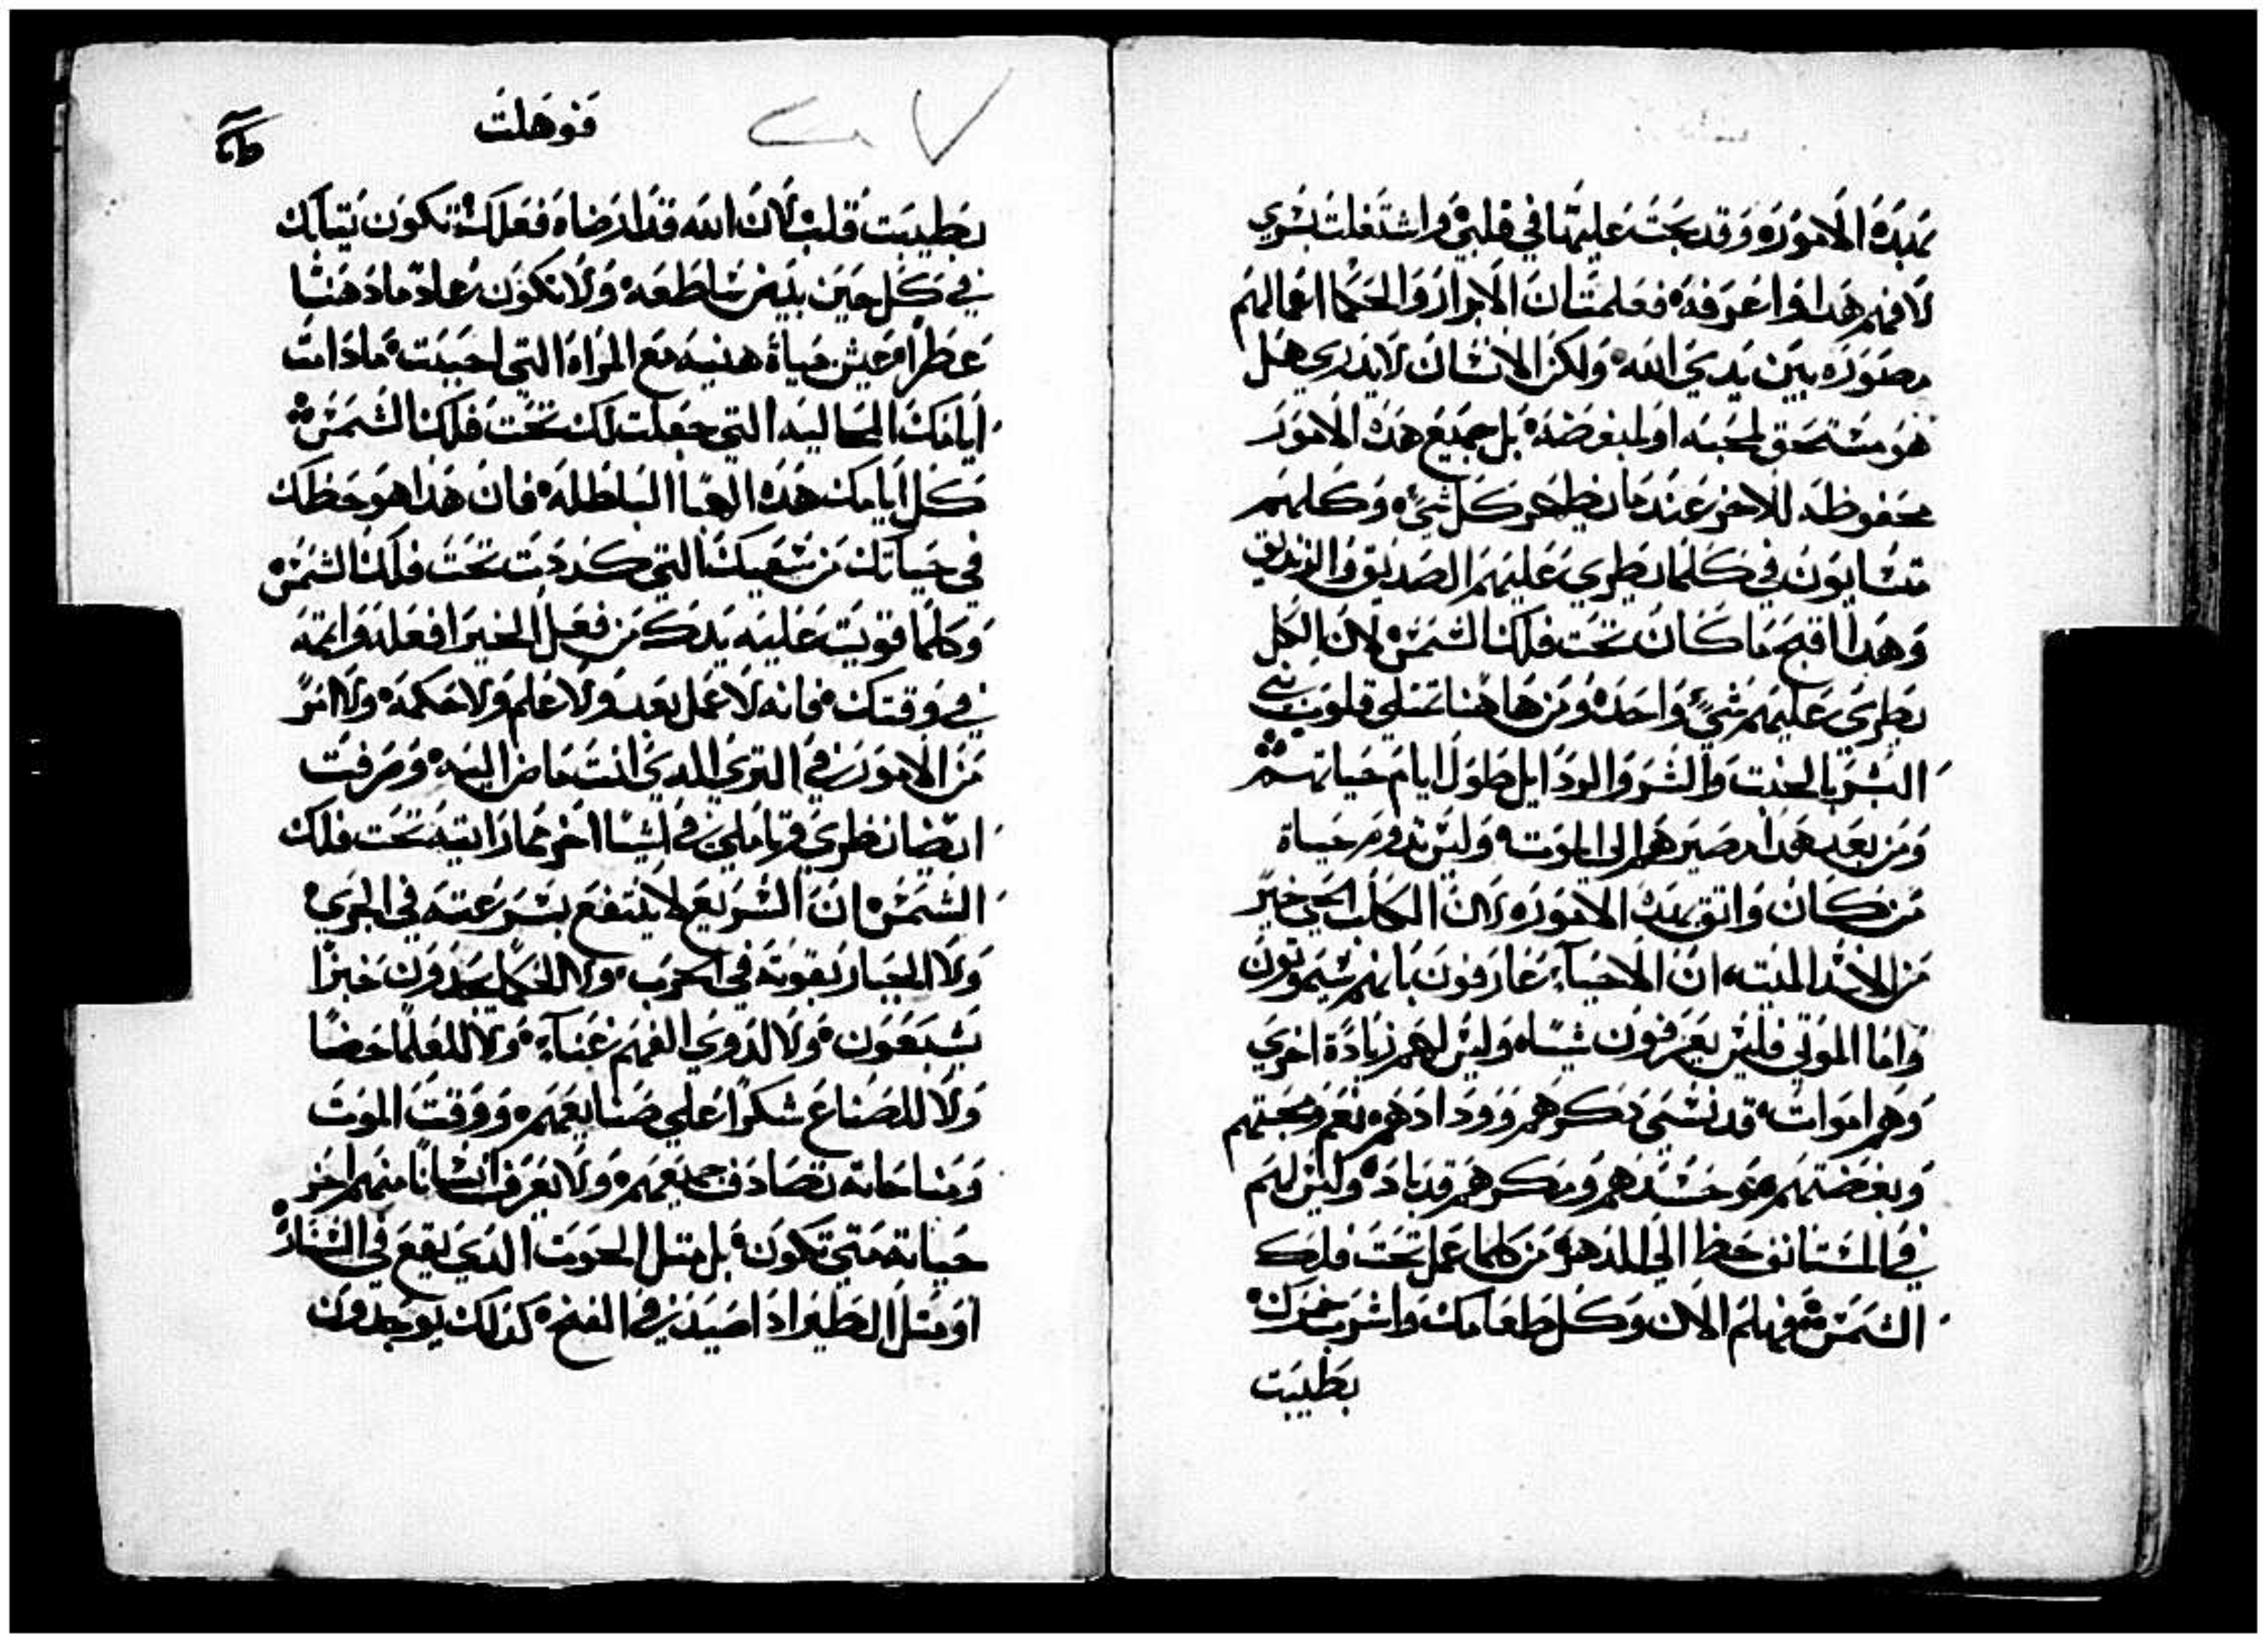 بهذه الامور وقد بحت عليها في قلبي واشتغلت بسري
لافهم هدا واعرفه فعلمت ان الابرار والحكما اعمالهم
مصوره بين يدي الله ولكن الانسان لا يدري هل
هو مستحق لمحبه او لبغضه بل جميع هده الامور
محفوظه للاخر عندما يظهر كل شي وكلهم
متسايون في كلما يطري عليهم الصديق والزنديق
وهدا اقبح ما كان تحت فلك الشمس لان الكل
يطري عليهم شي واحد ومن هاهنا تمتلي قلوب بني
البشر بالخبت والشر والردايل طول ايام حياتهم
ومن بعد هدا مصيرهم الي الموت وليس يدوم حياة
من كان واتق بهده الامور لان الكلب الحي خير
من الاسد الميت ان الاحيآء عارفون بانهم سيموتون
واما الموتي فليس يعرفون شيا وليس لهم زيادة اخري
وهم اموات قد نسي دكرهم وودادهم نعم ومحبتهم
وبغضتهم وحسدهم ومكرهم قد باد وليس لهم
في المستانف حظا الي الدهر من كلما عمل تحت فلك
الشمس فهلم الان وكل طعامك واشرب خمرك
بطيبت
فوهلت
بطيبت قلب لان الله قد ارضاه فعلك تكون تيابك
في كل حين بيض ساطعه ولا تكون عادما دهنا
عطرا وعيش حياة هنيه مع المراه التي احببت مادامت
ايامك المحاليه التي جعلت لك تحت فلك الشمس
كل ايامك هده الهبا الباطله فان هدا هو حظك
في حياتك من شعيك التي كددت تحت فلك الشمس
وكلما قويت عليه يدك من فعل الخير افعله واتمه
في وقتك فانه لا عمل بعد ولا علم ولا حكمه ولا امر
من الامور في التري الدي انت ماض اليه وصرفت
ايضا نظري وتاملي في اشيا اخر مما رايته تحت فلك
الشمس ان السريع لا ينتفع بسرعته في الجري
ولا الجبار بقوته في الحرب ولا الحكما يجدون خبزا
يشبعون ولا لدوي الفهم غنآء ولا للعلما حضا
ولا للصناع شكرا علي صنايعهم ووقت الموت
ومناحاته تصادف جميعهم ولا يعرف انسانا منهم اخر
حياته متي تكون بل متل الحوت الدي يقع في السنار
او متل الطير ادا صيد في الفخ كدلك يوجدون